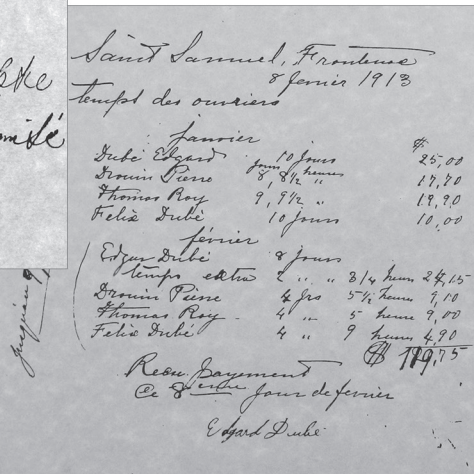 Saint Samuel, Frontenac
8 fevrier 1913
temps des ouvriers
janvier
$
Dubé Edgard 10 Jours 25,00
Jours heures
Drouin Pierre 8, 8½ " 17,70
Thomas Roy 9, 9½ " 19,90
Felix Dubé 10 Jours 10,00
février
Edgar Dubé 8 jours
temps extra 2 " " 3/4 heures 24,15
Drouin Pierre 4 Jrs 5½ heure 9,10
Thomas Roy 4 " 5 heure 9,00
Felix Dubé 4 " 9 heures 4,90
$ 119,75
Recu payment
Ce 8 ieme Jour de fevrier
Edgard Dubé